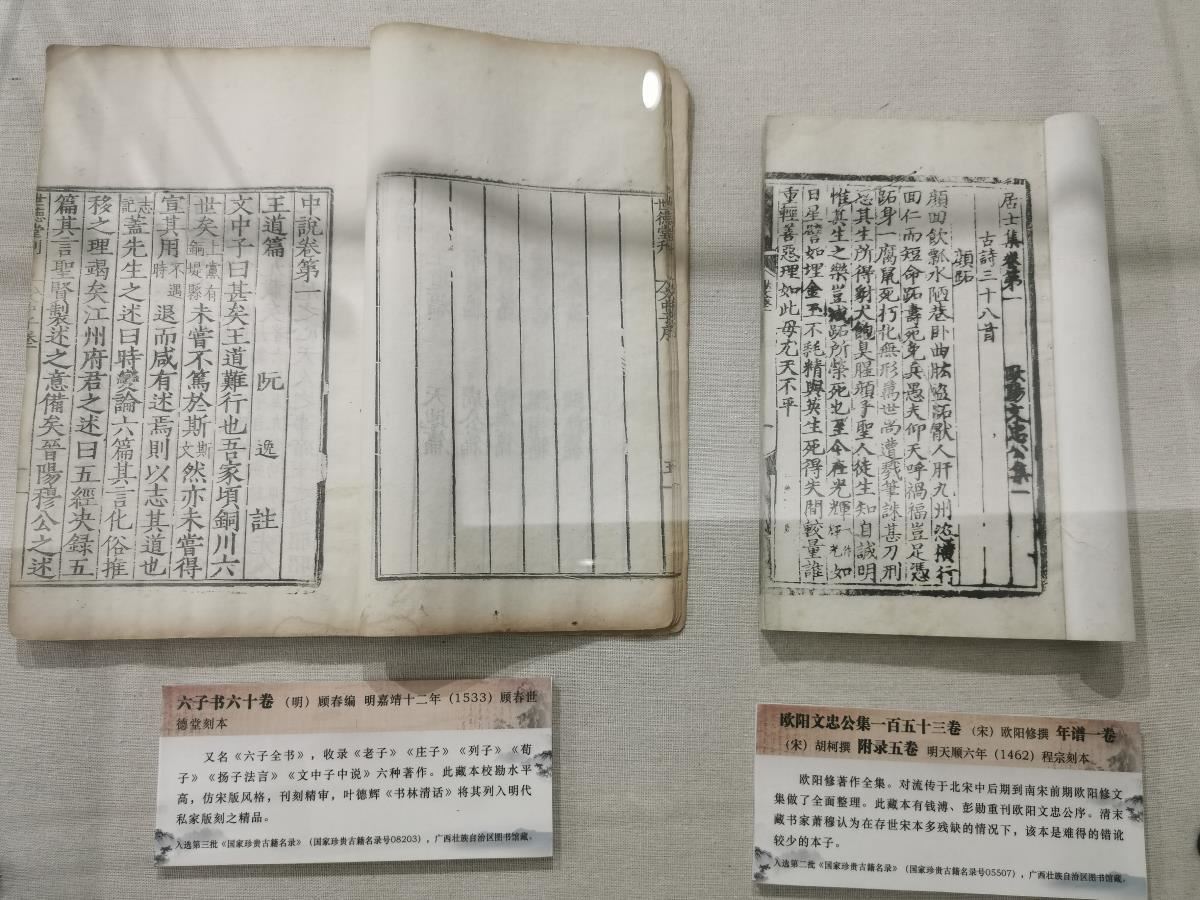 中說卷第一
王道篇 阮逸註
文中子曰甚矣王道難行也吾家頃銅川六
世矣上黨有銅堤縣未嘗不篤於斯斯文然亦未嘗得
宣其用不遇時退而咸有述焉則以志其道也
志記蓋先生之述曰時變論六篇其言化俗推
移之理竭矣江州府君之述曰五經決錄五
篇其言聖賢製述之意備矣晉陽穆公之述
世德堂刊
世德堂刊
居士集卷第一 歐陽文忠公集一
古詩三十八首
顏跖
顏回飲瓢水陋巷臥曲肱盜跖猒人肝九州恣橫行
回仁而短命跖壽死免兵愚夫仰天呼禍福豈足憑
跖身一腐鼠死朽化無形萬世尚遭戮筆誅甚刀刑
思其生所得豺犬飽臭腥顏子聖人徒生知自誠明
惟其生之樂豈減跖所榮死也至今在光輝一作如
日星譬如埋金玉不耗精與英生死得失間較量誰
重輕善惡理如此毋尤天不平
六子书六十卷 （明）顾春编 明嘉靖十二年（1533）顾春世
德堂刻本
又名《六子全书》，收录《老子》《庄子》《列子》《荀
子》《扬子法言》《文中子中说》六种著作。此藏本校勘水平
高，仿宋版风格，刊刻精审，叶德辉《书林清话》将其列入明代
私家版刻之精品。
入选第三批《国家珍贵古籍名录》（国家珍贵古籍名录号08203），广西壮族自治区图书馆藏。
欧阳文忠公集一百五十三卷 （宋）欧阳修撰 年谱一卷
（宋）胡柯撰 附录五卷 明天顺六年（1462）程宗刻本
欧阳修著作全集。对流传于北宋中后期到南宋前期欧阳修文
集做了全面整理。此藏本有钱溥、彭勖重刊欧阳文忠公序。清末
藏书家萧穆认为在存世宋本多残缺的情况下，该本是难得的错讹
较少的本子。
入选第二批《国家珍贵古籍名录》（国家珍贵古籍名录号05507），广西壮族自治区图书馆藏。